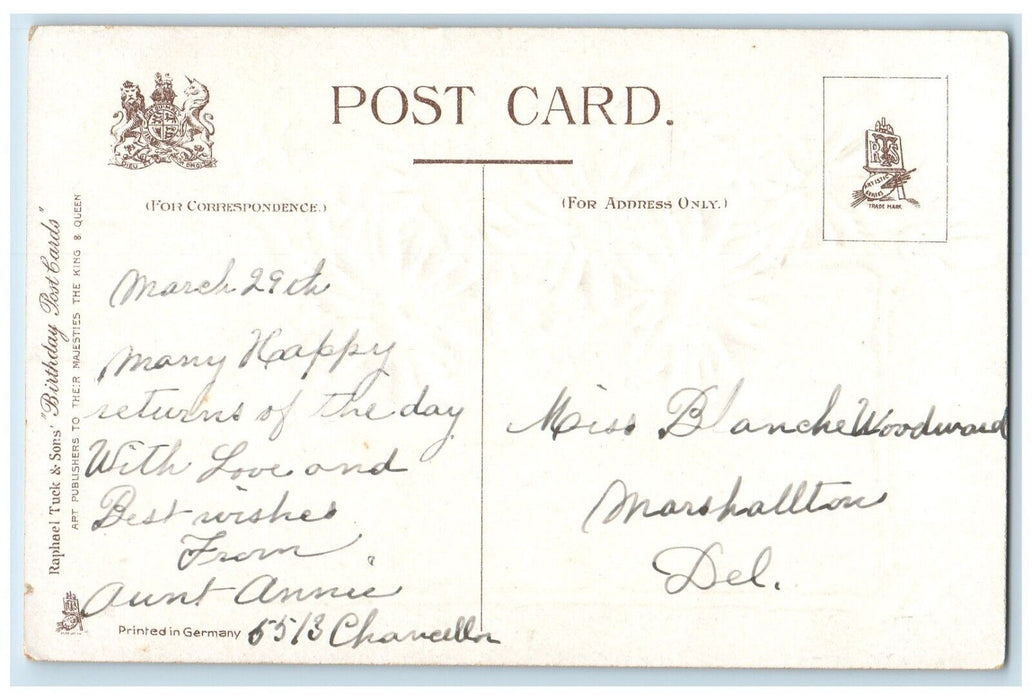 POST CARD.
(FOR CORRESPONDENCE.)
(FOR ADDRESS ONLY.)
RTS
ARTISTIC SERIES
TRADE MARK
Raphael Tuck & Sons' "Birthday Post Cards"
ART PUBLISHERS TO THEIR MAJESTIES THE KING & QUEEN
March 29th
Many Happy
returns of the day
With Love and
Best wishes
From
Aunt Annie
5513 Chancellor
Printed in Germany
Miss Blanche Woodward
Marshallton
Del.